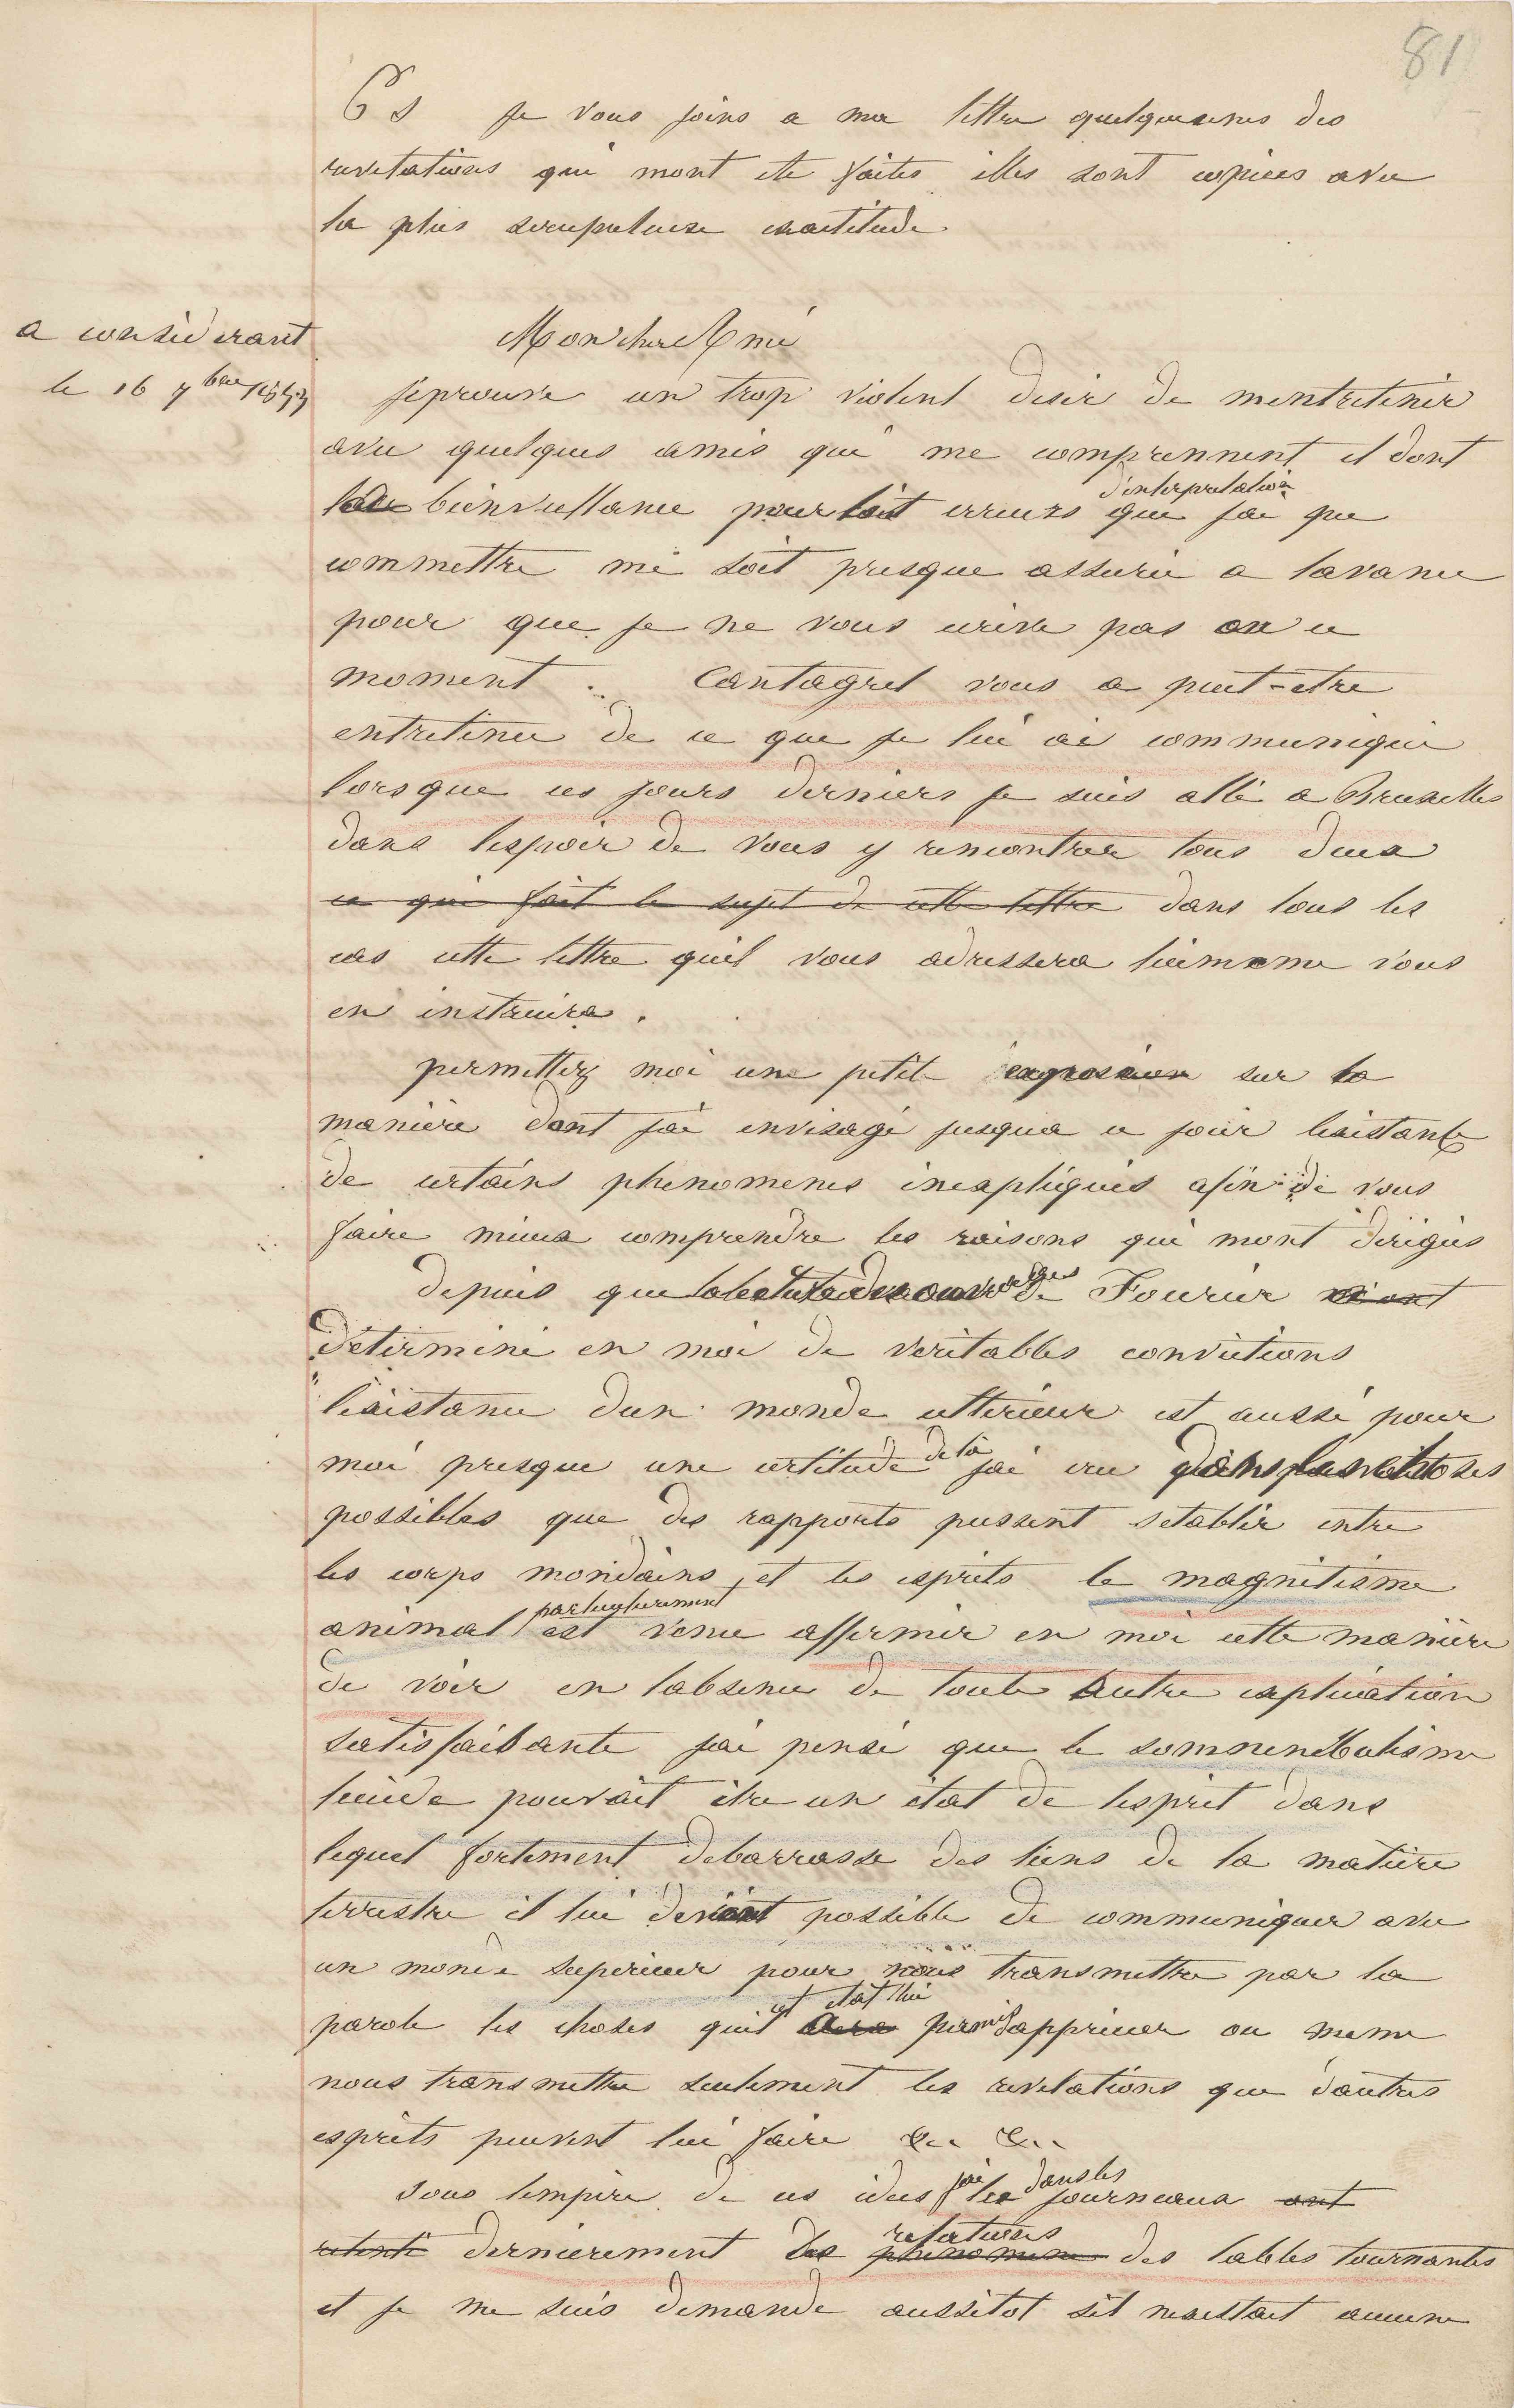 81
P S Je vous joins a ma lettre quelquunes des
revelations qui mont ete faites elles sont copiees avec
la plus scrupuleuse exactitude.
a considerant
le 16 7bre 1853
Mon cher Ami
jeprouve un trop violent desir de mentretenir
avec quelques amis qui me comprennent et dont
la bienveillance pour les erreurs d'interpretation que jai pu
commettre me soit presque assurée a lavance
pour que je ne vous ecrive pas en ce
moment. Cantagrel vous a peut-etre
entretenu de ce que je lui ai communiqué
lorsque ces jours derniers je suis allé a Bruxelles
dans lespoir de vous y rencontrer tous deux
ce qui fait le sujet de cette lettre dans tous les
cas cette lettre quil vous adressera luimeme vous
en instruira.
permettez moi une petite expression sur la
maniere dont jai envisagé jusqua ce jour lexistante
de certains phenomenes inexpliqués afin de vous
faire mieux comprendre les raisons qui mont dirigés
depuis que la lecture des ouvrages de Fourier ont
determiné en moi de veritables convictions
lexistance dun monde ulterieur est aussi pour
moi presque une certitude de là jai cru choses
possibles que des rapports pussent setablir entre
les corps mondains, et les esprits le magnetisme
animal particulierement est venu affermir en moi cette maniere
de voir en labsence de toute autre explication
satisfaisante jai pensé que le somnenbulisme
lucide pouvait être un état de lesprit dans
lequel fortement debarrassé des liens de la matiere
terrestre il lui devient possible de communiquer avec
un monde superieur pour nous transmettre par la
parole les choses quil cet etat lui permis dapprecier ou meme
nous transmettre seulement les revelations que d'autres
esprits peuvent lui faire &c &c
sous lempire de ces idees jai lu dans les journeaux ont
retenti dernierement des relations phenomene des tables tournantes
et je me suis demande aussitot sil nexistait aucune